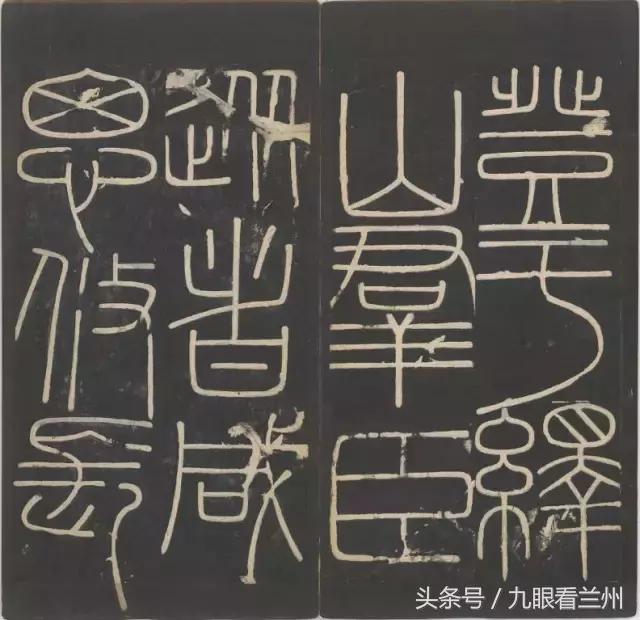 登于繹
山羣臣
從者咸
思攸長
头条号 / 九眼看兰州